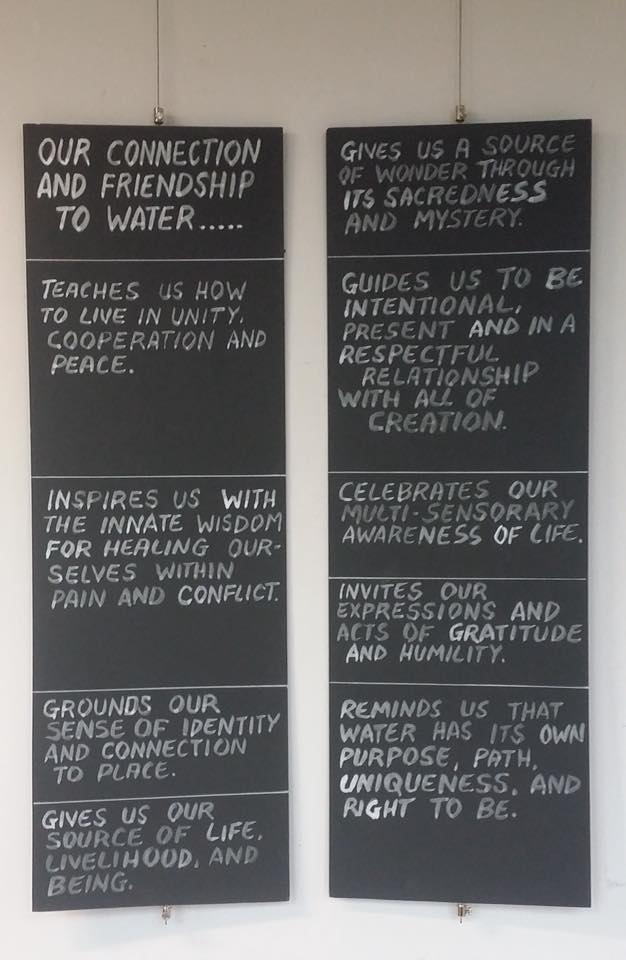 OUR CONNECTION
AND FRIENDSHIP
TO WATER.....
TEACHES US HOW
TO LIVE IN UNITY,
COOPERATION AND
PEACE.
INSPIRES US WITH
THE INNATE WISDOM
FOR HEALING OUR-
SELVES WITHIN
PAIN AND CONFLICT.
GROUNDS OUR
SENSE OF IDENTITY
AND CONNECTION
TO PLACE.
GIVES US OUR
SOURCE OF LIFE,
LIVELIHOOD, AND
BEING.
GIVES US A SOURCE
OF WONDER THROUGH
ITS SACREDNESS
AND MYSTERY.
GUIDES US TO BE
INTENTIONAL,
PRESENT AND IN A
RESPECTFUL
RELATIONSHIP
WITH ALL OF
CREATION.
CELEBRATES OUR
MULTI-SENSORARY
AWARENESS OF LIFE.
INVITES OUR
EXPRESSIONS AND
ACTS OF GRATITUDE
AND HUMILITY.
REMINDS US THAT
WATER HAS ITS OWN
PURPOSE, PATH,
UNIQUENESS, AND
RIGHT TO BE.